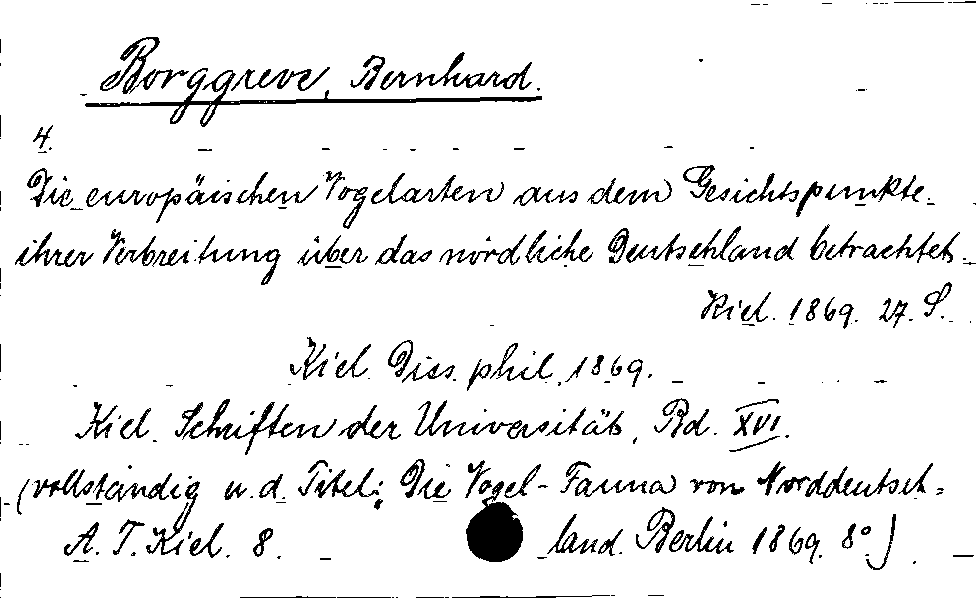 Borggreve, Bernhard.
4.
Die europäischen Vogelarten aus dem Gesichtspunkte
ihrer Verbreitung über das nördliche Deutschland betrachtet.
Kiel. 1869. 27. S.
Kiel. Diss. phil. 1869.
Kiel. Schriften der Universität, Bd. XVI.
(vollständig u. d. Titel: Die Vogel-Fauna von Norddeutsch-
A. T. Kiel. 8. land. Berlin 1869. 8°)